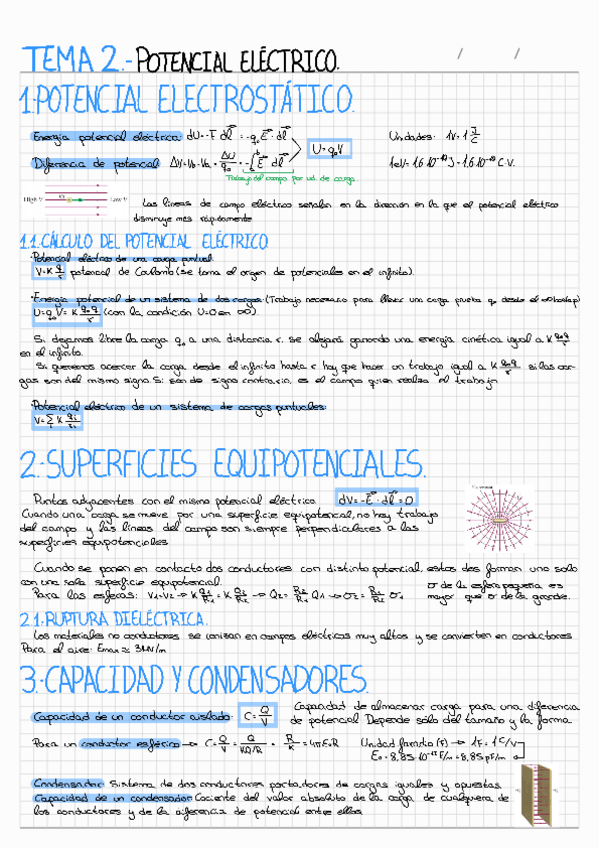 TEMA 2.- POTENCIAL ELÉCTRICO.
1.-POTENCIAL ELECTROSTÁTICO.
Energía potencial eléctrica: dU = -F dl = -q₀ E · dl
U = q₀V
Unidades: 1V = 1 J/C
Diferencia de potencial: ΔV = Vb - Va = ΔU/q₀ = -∫ E · dl
1eV = 1,6·10⁻¹⁹ J = 1,6·10⁻¹⁹ C·V.
Trabajo del campo por ud. de carga
High V
Low V
Las líneas de campo eléctrico señalan en la dirección en la que el potencial eléctrico
disminuye más rápidamente
1.1.CÁLCULO DEL POTENCIAL ELÉCTRICO
·Potencial eléctrico de una carga puntual:
V = K q/r potencial de Coulomb (se toma el origen de potenciales en el infinito).
·Energía potencial de un sistema de dos cargas: (Trabajo necesario para llevar una carga prueba q₀ desde el ∞ hasta p)
U = q₀V = K q₀q/r (con la condición U=0 en ∞).
Si dejamos libre la carga q₀ a una distancia r, se alejará ganando una energía cinética igual a K q₀q/r
en el infinito.
Si queremos acercar la carga desde el infinito hasta r hay que hacer un trabajo igual a K q₀q/r si las car-
gas son del mismo signo. Si son de signo contrario, es el campo quien realiza el trabajo
·Potencial eléctrico de un sistema de cargas puntuales:
V = Σ K qᵢ/rᵢ
2.-SUPERFICIES EQUIPOTENCIALES.
Puntos adyacentes con el mismo potencial eléctrico dV = -E · dl = 0
Cuando una carga se mueve por una superficie equipotencial, no hay trabajo
del campo y las líneas del campo son siempre perpendiculares a las
superficies equipotenciales
Cuando se ponen en contacto dos conductores con distinto potencial, estos dos forman uno solo
con una sola superficie equipotencial.
Para las esferas: V₁=V₂ → K Q₁/R₁ = K Q₂/R₂ → Q₂ = R₂/R₁ Q₁ → σ₂ = R₁/R₂ σ₁
σ de la esfera pequeña es
mayor que σ de la grande.
2.1.RUPTURA DIELÉCTRICA.
Los materiales no conductores se ionizan en campos eléctricos muy altos y se convierten en conductores
Para el aire: Emax ≈ 3MV/m
3.-CAPACIDAD Y CONDENSADORES.
Capacidad de un conductor aislado: C = Q/V
Capacidad de almacenar carga para una diferencia
de potencial. Depende sólo del tamaño y la forma.
Para un conductor esférico → C = Q/V = Q/(KQ/R) = R/K = 4πε₀R
Unidad: faradio (F) → 1F = 1 C/V
ε₀ = 8,85·10⁻¹² F/m = 8,85 pF/m
Condensador: Sistema de dos conductores portadores de cargas iguales y opuestas.
Capacidad de un condensador: Cociente del valor absoluto de la carga de cualquiera de
los conductores y de la diferencia de potencial entre ellos.